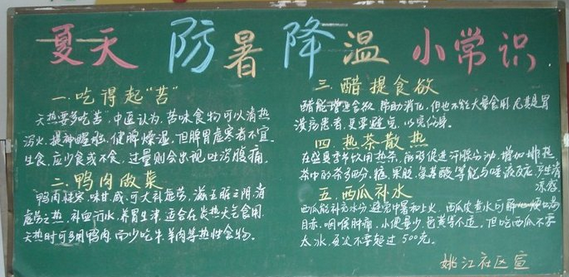 夏天 防暑降温 小常识
一.吃得起“苦”
天热要多吃苦,中医认为,苦味食物可以清热
泻火,提神醒脑,健脾燥湿,但脾胃虚寒者不宜
生食,应少食或不食,过量则会出现吐泻腹痛。
二.鸭肉做菜
鸭肉性寒,味甘咸,可大补虚劳,滋五脏之阴,清
虚劳之热,补血行水,养胃生津,适合在炎热天气食用。
天热时可多用鸭肉,而少吃牛、羊肉等热性食物。
三.醋提食欲
醋能增进食欲,帮助消化,但也不能大量食用,尤其是胃
溃疡患者,更要避免,以免伤身。
四.热茶散热
在盛夏时节饮用热茶,能够促进汗腺分泌,增加排热
茶中的茶多酚、糖、果胶、氨基酸等能与唾液反应,产生清
凉感
五.西瓜补水
西瓜能补充水分,避免中暑和上火,
目赤,咽喉肿痛,小便量少,色黄等不适,但吃西瓜不要
太冰,每次不要超过500克。
姚江社区宣